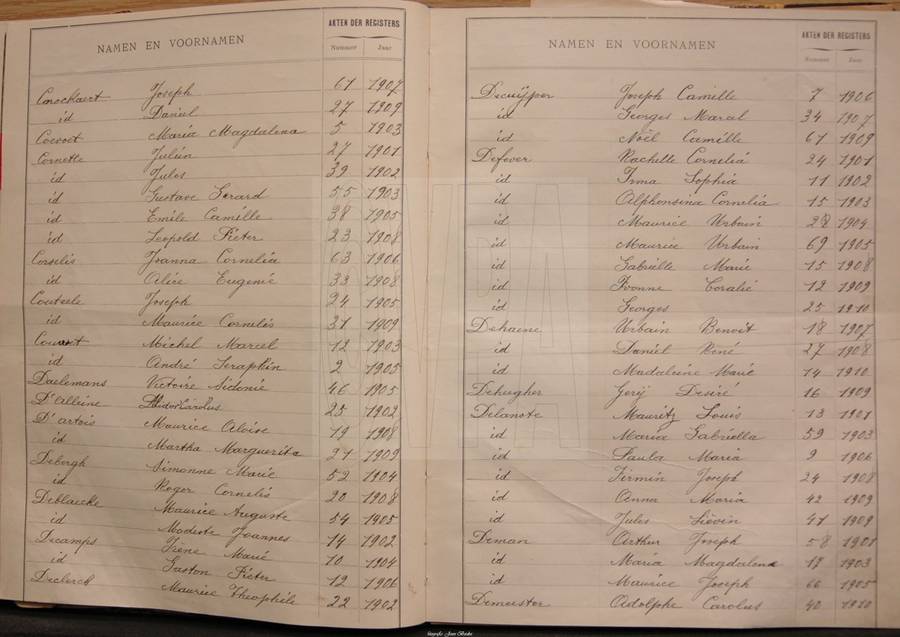 NAMEN EN VOORNAMEN AKTEN DER REGISTERS
Nummer Jaar
Cnockaert Joseph 61 1907
id Daniel 27 1909
Cocvoet Maria Magdalena 5 1903
Cornette Julien 27 1901
id Jules 39 1902
id Gustave Gerard 55 1903
id Emile Camille 38 1905
id Leopold Pieter 23 1908
Corselis Joanna Cornelia 63 1906
id Alice Eugenié 33 1908
Coutsele Joseph 24 1905
id Maurice Cornelis 31 1909
Michel Marcel 12 1903
id André Seraphin 2 1905
Daelemans Victoire Sidonié 46 1905
D'Alleine Carolus 25 1902
D'artois Maurice Aloise 19 1908
id Martha Marguerita 21 1909
Debergh Simonne Marie 52 1904
id Roger Cornelis 20 1908
Deblaecke Maurice Auguste 54 1905
id Modeste Joannes 14 1902
Decamps Irène Marie 10 1904
id Gaston Pieter 12 1906
Declerck Maurice Theophile 22 1902
NAMEN EN VOORNAMEN AKTEN DER REGISTERS
Nummer Jaar
Decuÿper Joseph Camille 7 1906
id Georges Maral 34 1907
id Noël Camille 61 1909
Defever Rachelle Cornelia 24 1901
id Irma Sophia 11 1902
id Alphonsina Cornelia 15 1903
id Maurice Urbain 28 1904
id Maurice Urbain 69 1905
id Gabriëlle Marie 15 1908
id Yvonne Coralie 12 1909
id Georges 25 1910
Dehaene Urbain Benoit 18 1907
id Daniël René 27 1908
id Madaleine Marie 14 1910
Deheugher Gerÿ Desiré 16 1909
Delanote Mauritz Louis 13 1901
id Maria Gabriella 59 1903
id Paula Maria 9 1906
id Firmin Joseph 24 1908
id Anna Maria 42 1909
id Jules Liévin 41 1909
Deman Arthur Joseph 58 1901
id Maria Magdalena 17 1903
id Maurice Joseph 66 1905
Demeester Adolphe Carolus 40 1910